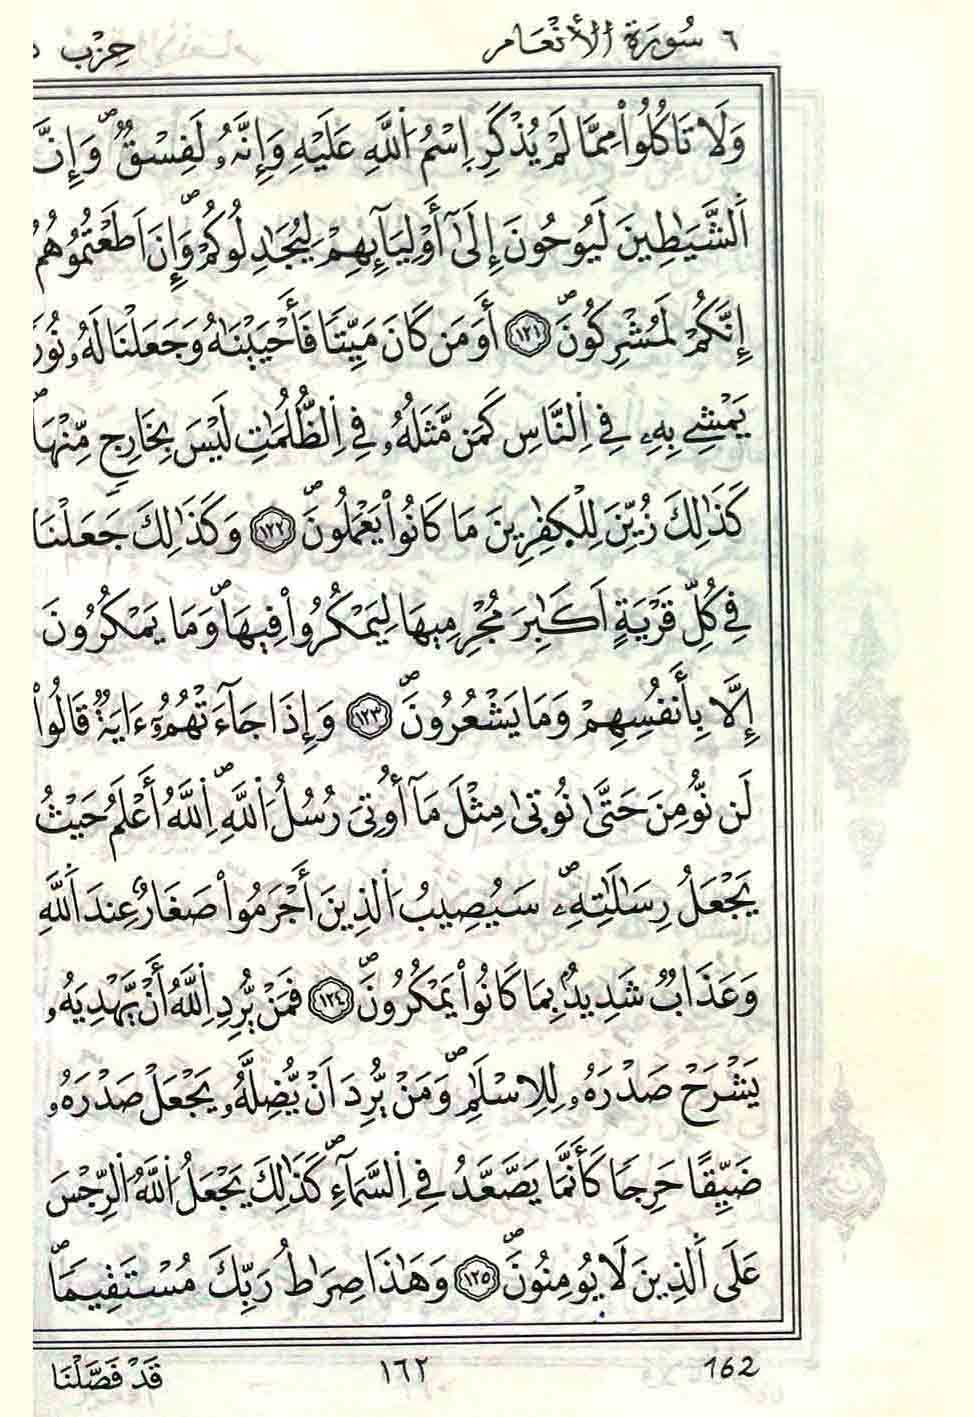 ٦ سُورَةُ الأَنْعَام حِزْب
وَلَا تَاكُلُواْ مِمَّا لَمْ يُذْكَرِ اِسْمُ اُللَّهِ عَلَيْهِ وَإِنَّهُۥ لَفِسْقٌۖ وَإِنَّ
اَلشَّيَٰطِينَ لَيُوحُونَ إِلَىٰٓ أَوْلِيَآئِهِمْ لِيُجَٰدِلُوكُمْۖ وَإِنَ اَطَعْتُمُوهُمُ
إِنَّكُمْ لَمُشْرِكُونَۖ ١٢١ أَوَمَن كَانَ مَيِّتاٗ فَأَحْيَيْنَٰهُ وَجَعَلْنَا لَهُۥ نُور
يَمْشِے بِهِۦ فِے اِلنَّاسِ كَمَن مَّثَلُهُۥ فِے اِلظُّلُمَٰتِ لَيْسَ بِخَارِجٖ مِّنْهَاۖ
كَذَٰلِكَ زُيِّنَ لِلْكٰ۪فِرِينَ مَا كَانُواْ يَعْمَلُونَۖ ١٢٢ وَكَذَٰلِكَ جَعَلْنَا
فِے كُلِّ قَرْيَةٍ اَكَٰبِرَ مُجْرِمِيهَا لِيَمْكُرُواْ فِيهَاۖ وَمَا يَمْكُرُونَ
إِلَّا بِأَنفُسِهِمْ وَمَا يَشْعُرُونَۖ ١٢٣ وَإِذَا جَآءَتْهُمُۥٓ ءَايَةٞ قَالُواْ
لَن نُّومِنَ حَتَّىٰ نُوتىٰ مِثْلَ مَآ أُوتِىَ رُسُلُ اُللَّهِۖ اِللَّهُ أَعْلَمُ حَيْثُ
يَجْعَلُ رِسَٰلَٰتِهِۦۖ سَيُصِيبُ اُلذِينَ أَجْرَمُواْ صَغَارٌ عِندَ اَللَّهِ
وَعَذَابٞ شَدِيدُۢ بِمَا كَانُواْ يَمْكُرُونَۖ ١٢٤ فَمَنْ يُّرِدِ اِللَّهُ أَنْ يَّهْدِيَهُۥ
يَشْرَحْ صَدْرَهُۥ لِلِاسْلَٰمِۖ وَمَنْ يُّرِدَ اَنْ يُّضِلَّهُۥ يَجْعَلْ صَدْرَهُۥ
ضَيِّقًا حَرِجاٗ كَأَنَّمَا يَصَّعَّدُ فِے اِلسَّمَآءِۖ كَذَٰلِكَ يَجْعَلُ اُللَّهُ اُلرِّجْسَ
عَلَى اَلذِينَ لَا يُومِنُونَۖ ١٢٥ وَهَٰذَا صِرَٰطُ رَبِّكَ مُسْتَقِيماٗۖ
162 ١٦٢ قَدْ فَصَّلْنَا